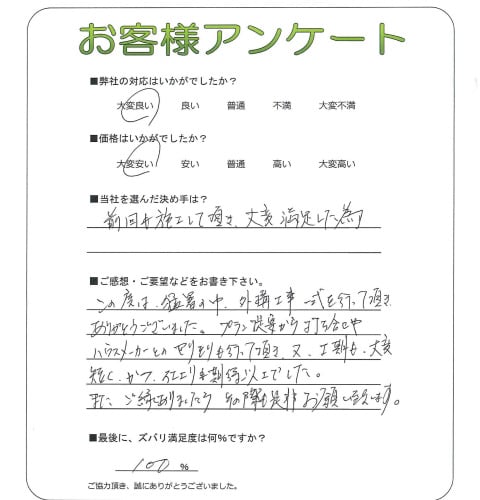 お客様アンケート
■弊社の対応はいかがでしたか？
大変良い 良い 普通 不満 大変不満
■価格はいかがでしたか？
大変安い 安い 普通 高い 大変高い
■当社を選んだ決め手は？
前回も施工して頂き、大変満足した為
■ご感想・ご要望などをお書き下さい。
この度は、猛暑の中、外構工事一式を行って頂き
ありがとうございました。プラン提案から打ち合せや
ハウスメーカーとのやりとりも行って頂き、又、工期も、大変
短く、かつ、仕上りも期待以上でした。
また、ご縁ありましたら、その際も是非お願い致します。
■最後に、ズバリ満足度は何%ですか？
100 %
ご協力頂き、誠にありがとうございました。